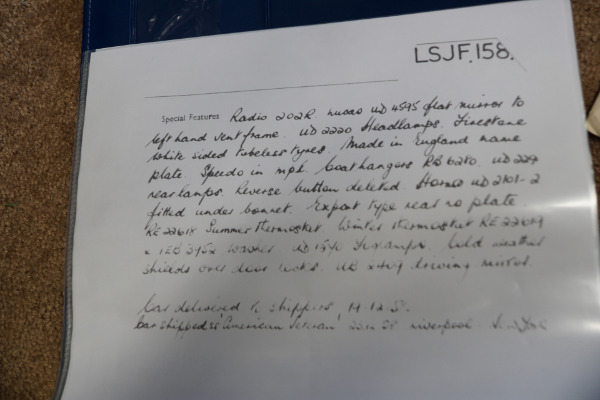 LSJF.158.
Special Features Radio 202R Lucas UD 4595 flat mirror to
left hand vent frame. UD 2220 Headlamps. Firestone
White sided tubeless tyres. Made in England name
plate. Speedo in mph. Coat hangers RB 6280. UD 224
rear lamps Reverse button deleted Horns UD 2101-2
fitted under bonnet. Export type rear no plate.
Summer thermostat. Winter thermostat
Cold weather
shields over door locks. driving mirror.
Car delivered to shippers,
Car shipped "American Veteran" Liverpool - New York